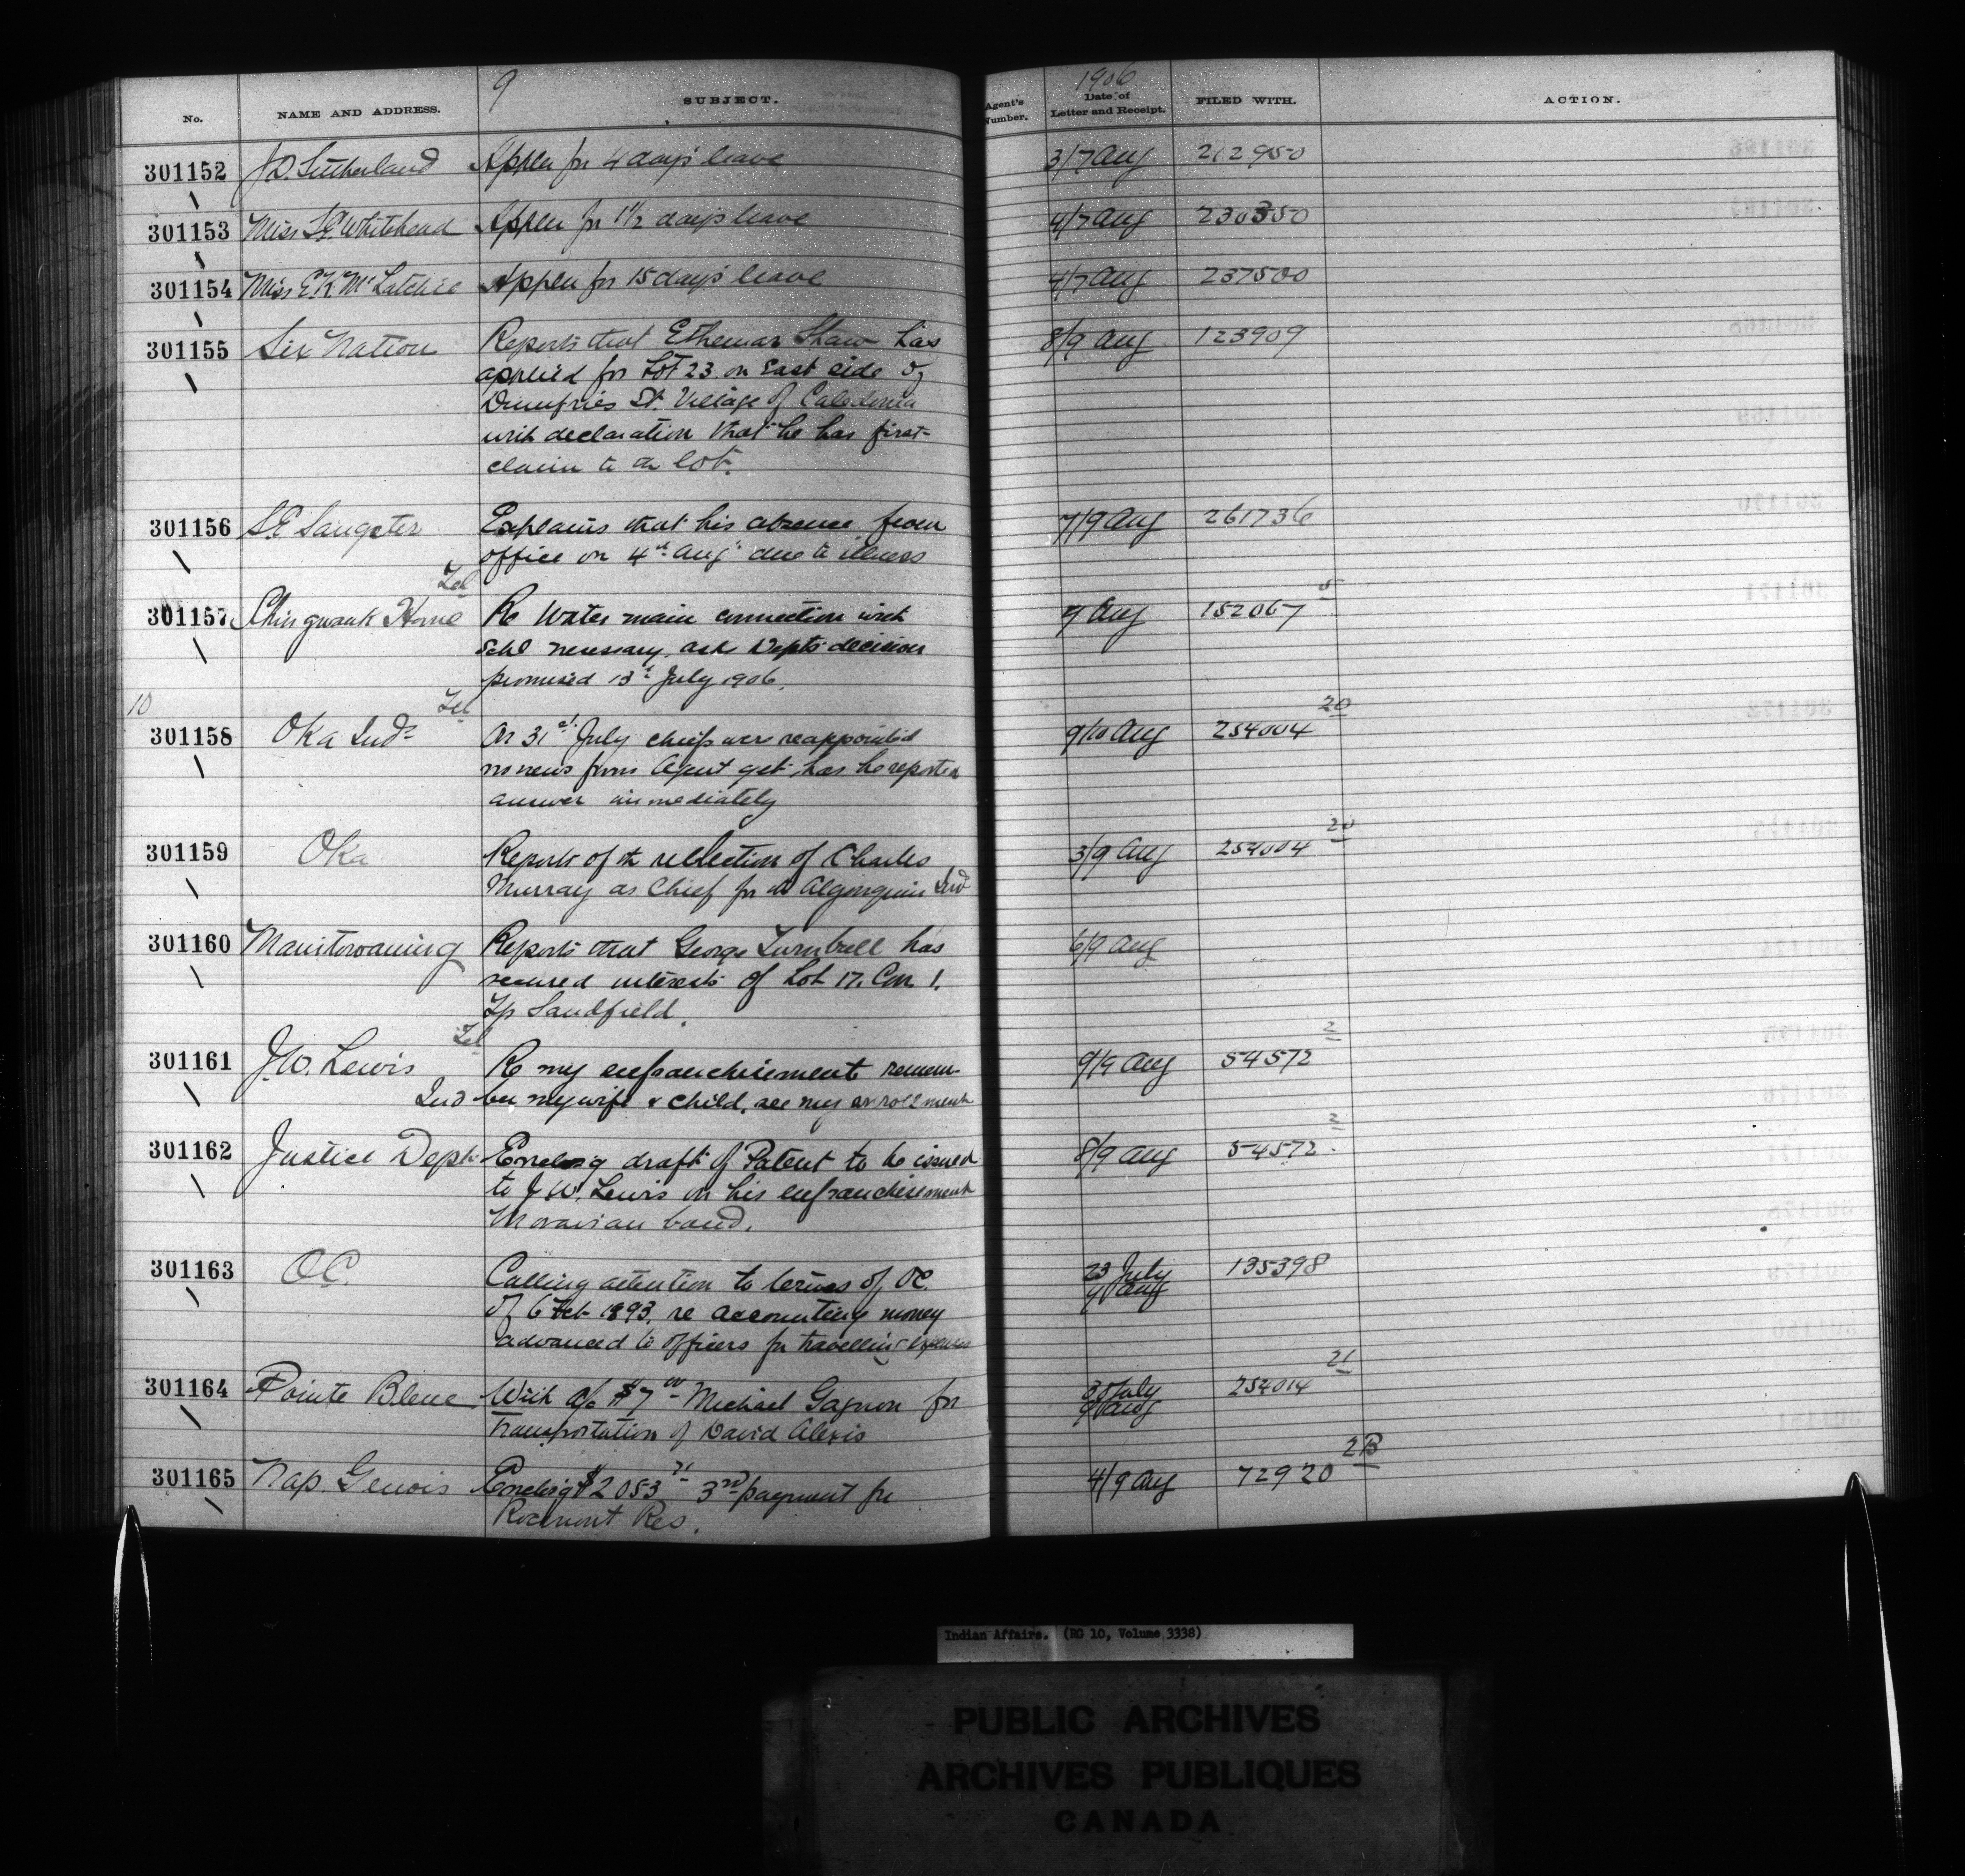 9
1906
No. NAME AND ADDRESS. SUBJECT. Agent's Number. Date of Letter and Receipt. FILED WITH. ACTION.
301152 J.D. Sutherland Applen for 4 days leave 3/7 Aug 212950
301153 Miss Whitehead Applen for 1 1/2 days leave 4/7 Aug 230350
301154 Miss E K McLatchie Applen for 15 days leave 4/7 Aug 237500
301155 Six Nation Reports that Ethemar Shaw has 8/9 Aug 123909
applied for Lot 23 on East side of
Dumfries St. Village of Caledonia
with declaration that he has first
claim to the lot.
301156 S.E. Sangster Explains that his absence from 7/9 Aug 261736
office on 4th Aug due to illness
Tel
301157 Shingwauk Home Re Water main connection with 9 Aug 152067 5
Schl necessary, ask Depts decision
promised 13th July 1906.
10 Tel
301158 Oka Inds On 31st July chiefs were reappointed 9/10 Aug 254004 20
no news from Agent yet has he reported
answer immediately
301159 Oka Reports of the reelection of Charles 3/9 Aug 254004 20
Murray as Chief for the Algonquin Ind
301160 Manitowaning Reports that George Turnbull has 6/9 Aug
secured interests of Lot 17. Con 1.
Tp Sandfield.
Tel
301161 J.W. Lewis Re my enfranchisement remem- 9/9 Aug 54572 2
Ind ber my wife & child, see my enrollment
301162 Justice Dept Enclosg draft of Patent to be issued 8/9 Aug 54572 2
to J.W. Lewis on his enfranchisement
Moravian band.
301163 OC. Calling attention to terms of OC. 23 July 135398
of 6 Feb 1893. re accounting money 9 Aug
advanced to officers for travelling expenses
301164 Pointe Bleue With a/c $7 00 Michael Gagnon for 30 July 254014 21
Transportation of David Alexis 9 Aug
301165 Nap. Genois Enclosg $2053 71 3rd payment for 4/9 Aug 72920 2B
Rocmont Res.
Indian Affairs. (RG 10, Volume 3338)
PUBLIC ARCHIVES
ARCHIVES PUBLIQUES
CANADA